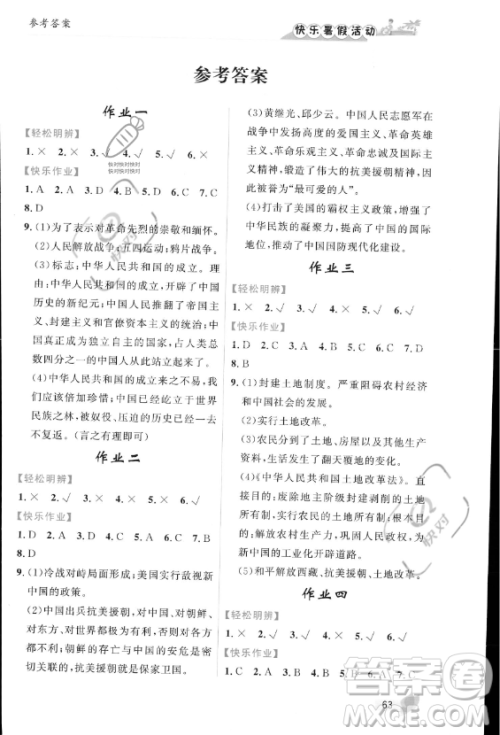 参考答案
快乐暑假活动
参考答案
作业一
【轻松明辨】
1.× 2.× 3.√ 4.√ 5.√ 6.×
【快乐作业】
1.A 2.A 3.D 4.A 5.D 6.C 7.D
8.D
9.(1)为了表示对革命先烈的崇敬和缅怀。
(2)人民解放战争;五四运动;鸦片战争。
(3)标志:中华人民共和国的成立。理由:
中华人民共和国的成立,开辟了中国
历史的新纪元;中国人民推翻了帝国主
义、封建主义和官僚资本主义的统治,中
国真正成为独立自主的国家,占人类总
数四分之一的中国人从此站立起来。
(4)中华人民共和国的成立来之不易,我
们应该倍加珍惜!中华民族是一个伟大
民族,被奴役、压迫的历史已经过去,一
去不复返。(言之有理即可)
作业二
【轻松明辨】
1.× 2.√ 3.√ 4.√ 5.× 6.×
【快乐作业】
8.D
9.(1)冷战对峙局面形成;美国实行敌视新
中国的政策。
(2)出兵抗美援朝,对中国、对朝鲜、
对东方、对世界都极为有利;不出兵,则都
不利。朝鲜的存亡与中国的安危是密
切关联的,抗美援朝是保家卫国。
(3)黄继光、邱少云。中国人民志愿军在
战争中发扬的爱国主义、革命英雄
主义、革命乐观主义、革命忠诚和国际主
义精神,锻造了伟大的抗美援朝精神,
被誉为“最可爱的人”。
(4)打击了美国的霸权主义政策,维护了
中华民族的尊严,提高了中国的国际
地位,推动了中国国防现代化建设。
作业三
【轻松明辨】
1.√ 2.√ 3.× 4.× 5.× 6.√
【快乐作业】
8.D
9.(1)封建土地制度。严重阻碍农村经济
和中国社会的发展。
(2)实行土地改革。
(3)农民分到了土地、房屋以及其他生产
资料,生活发生了翻天覆地的变化。
(4)《中华人民共和国土地改革法》。直
接目的:废除地主阶级封建剥削的土地
所有制,实行农民的土地所有制。根本目的:
解放农村生产力,巩固人民政权,为
新中国的工业化开辟道路。
(5)和平解放西藏、抗美援朝。
作业四
【轻松明辨】
1.√ 2.√ 3.× 4.× 5.√ 6.√
【快乐作业】
63